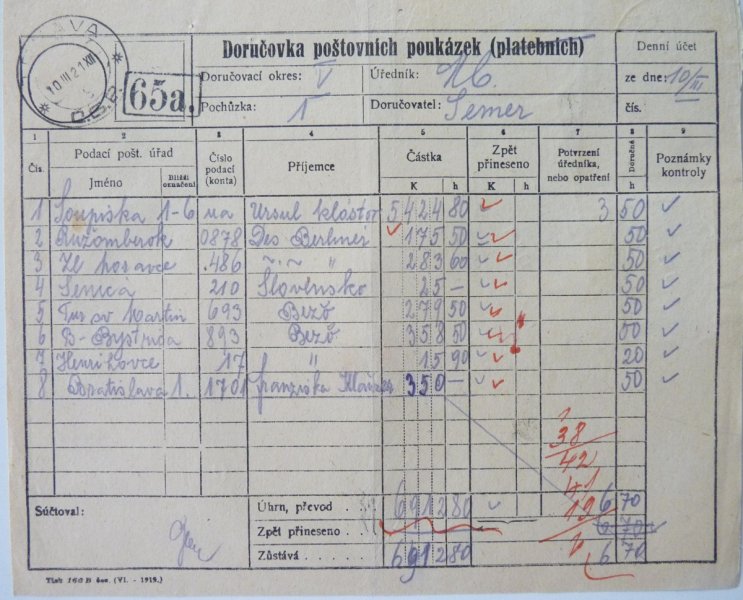 10 III 21 XII
Č.S.P.
65a.
Doručovka poštovních poukázek (platebních)
Doručovací okres: V
Úředník:
Pochůzka: 1
Doručovatel: Semer
Denní účet
ze dne: 10/III
čís.
1 2 3 4 5 6 7 8 9
Čís. Podací pošt. úřad Jméno Bližší označení Číslo podací (konta) Příjemce Částka K h Zpět přineseno K h Potvrzení úředníka, nebo opatření Doručné h Poznámky kontroly
1 Soupiska 1-6 na Ursul klástor 5424 80 3 50
2 Ružomberok 0878 Des Berliner 175 50 50
3 486 " 283 60 50
4 Senica 210 Slovensko 25 — 50
5 Tur sv Martin 693 Bező 279 50 50
6 B-Bystrica 893 Bező 358 50 50
7 17 " 15 90 20
8 Bratislava 1. 1701 Franziska 350 — 50
38
42
41
19
Súčtoval:
Úhrn, převod 6912 80 6 70
Zpět přineseno 6 70
Zůstává 6912 80 6 70
Tisk 160 B čes. (VI. - 1919.)